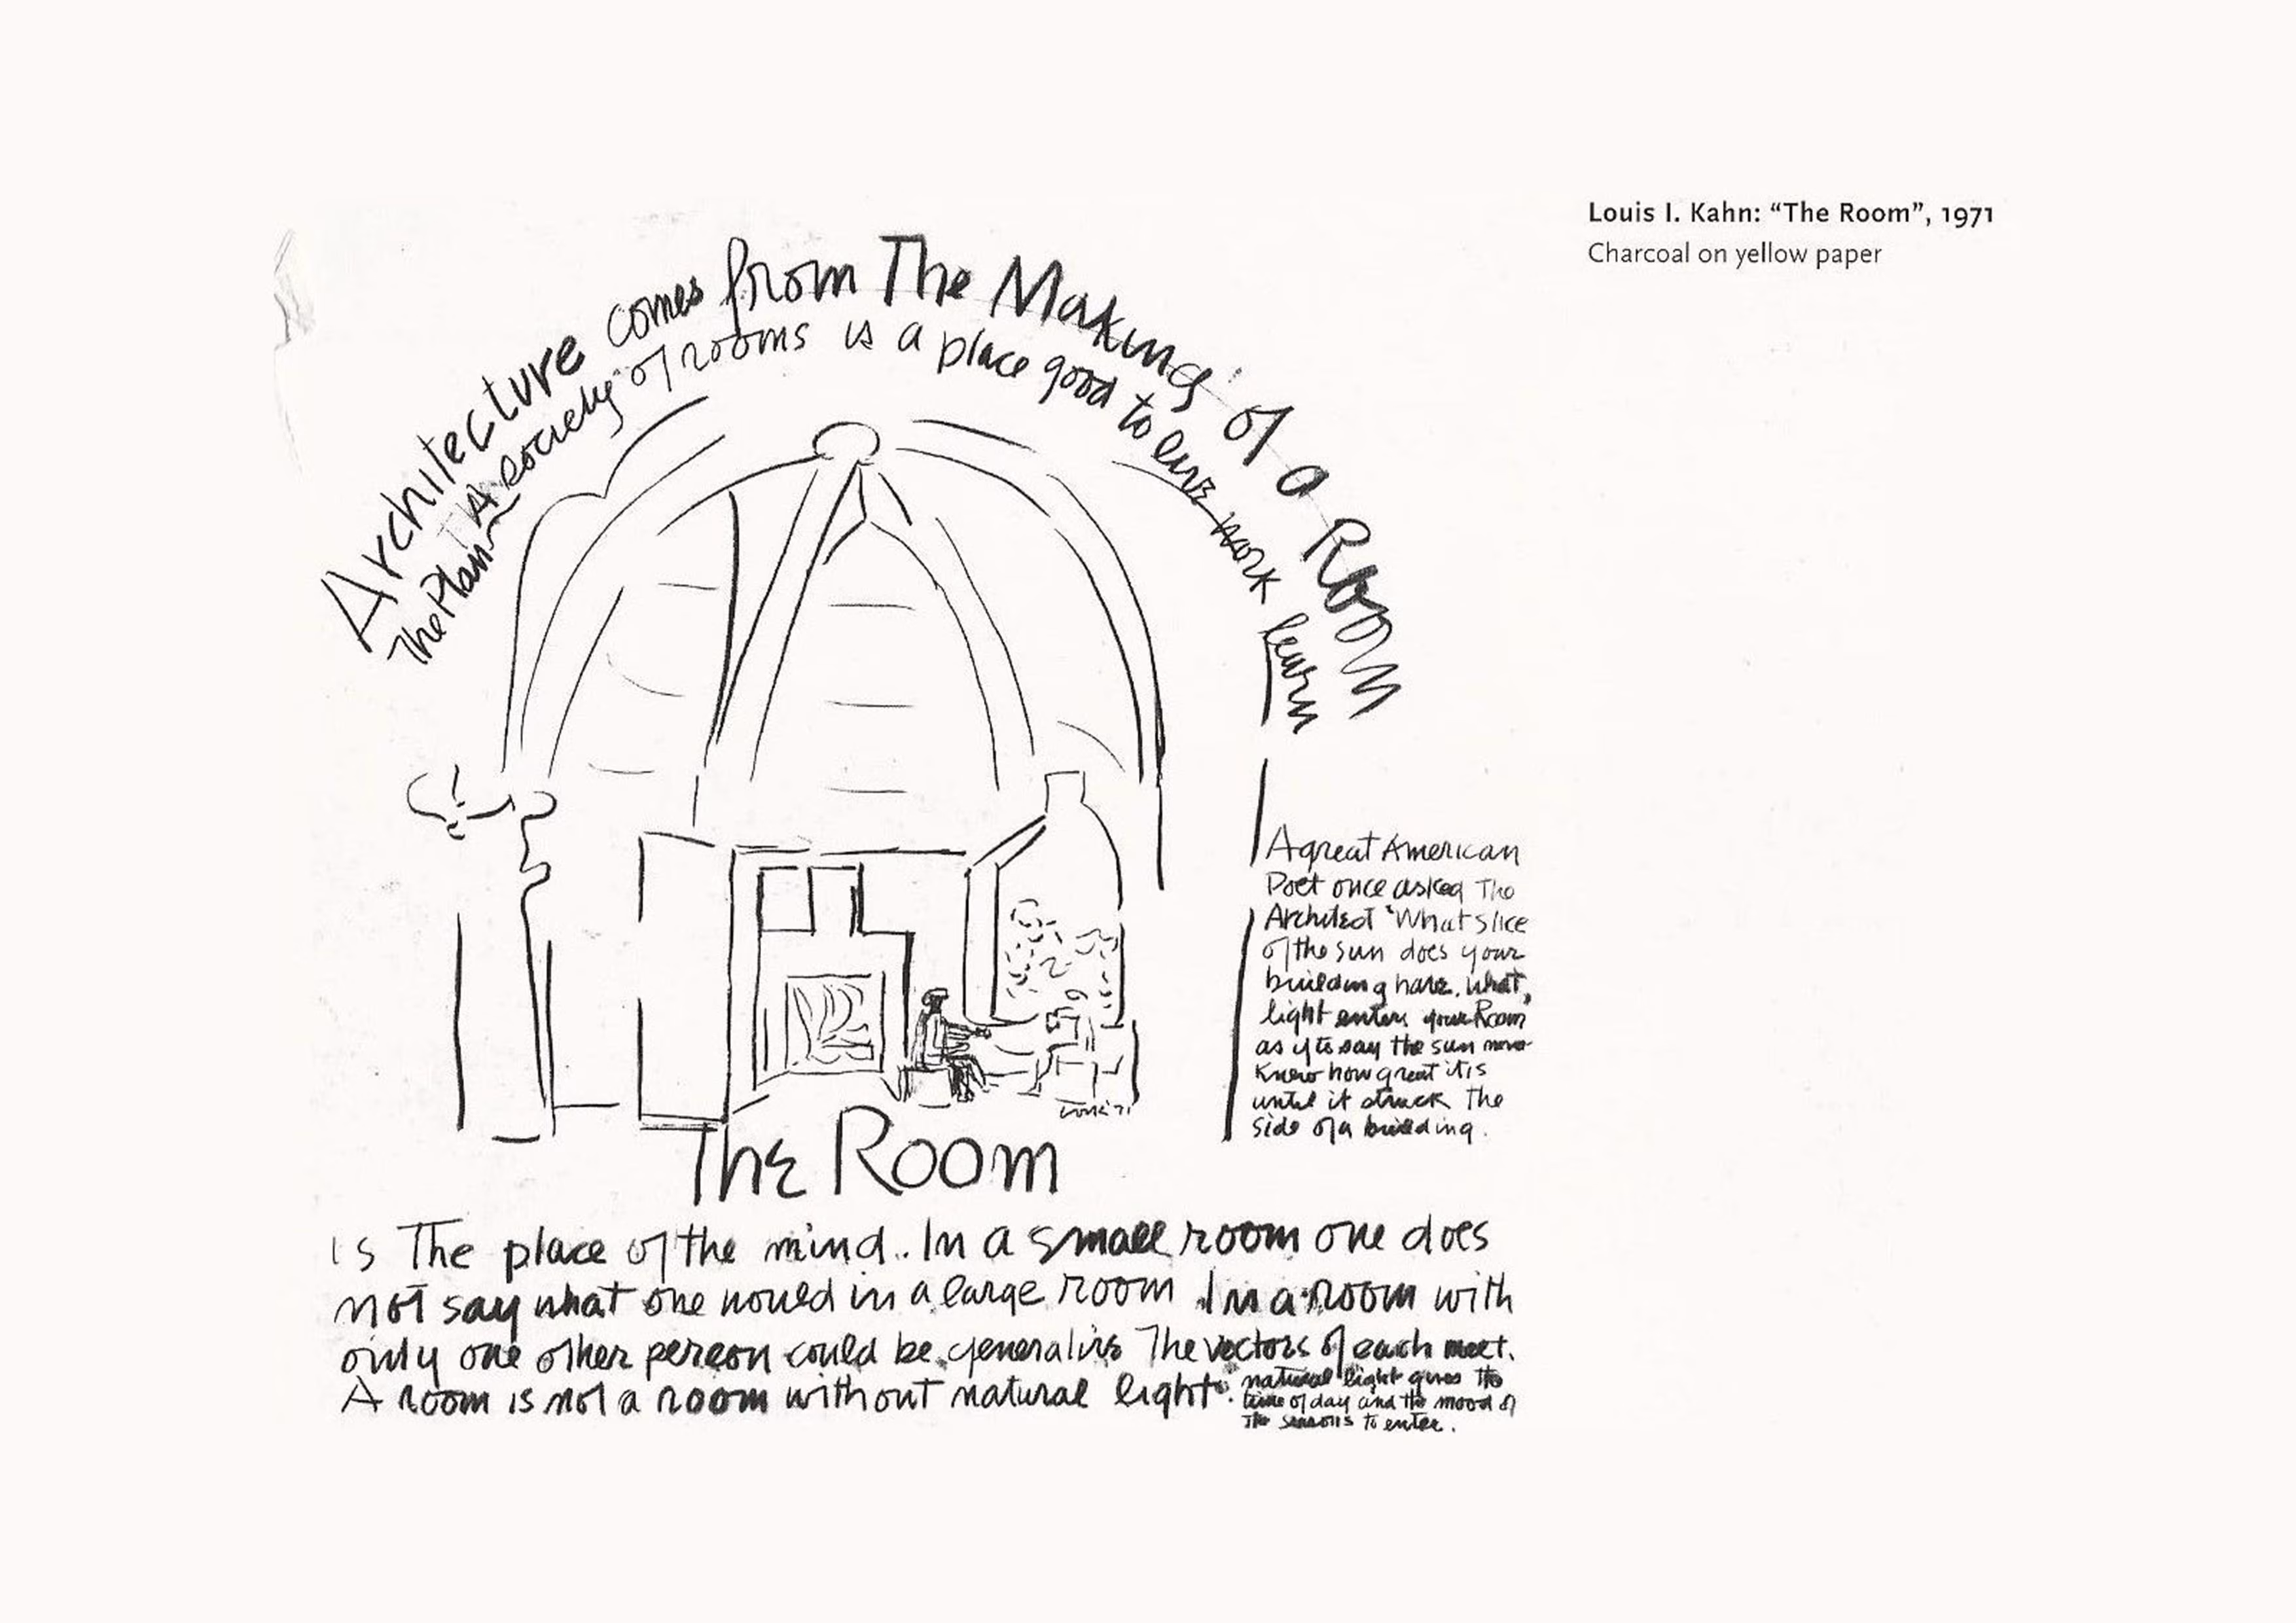 Louis I. Kahn: “The Room”, 1971
Charcoal on yellow paper
Architecture comes from The Making of a Room
The Plan A society of rooms is a place good to live work learn
A great American
Poet once asked The
Architect 'What slice
of the sun does your
building have, what
light enters your Room
as if to say the sun never
knew how great it is
until it struck the
side of a building.
The Room
is The place of the mind. In a small room one does
not say what one would in a large room In a room with
only one other person could be generative The vectors of each meet.
A room is not a room without natural light.
natural light gives the
time of day and the mood of
The seasons to enter.